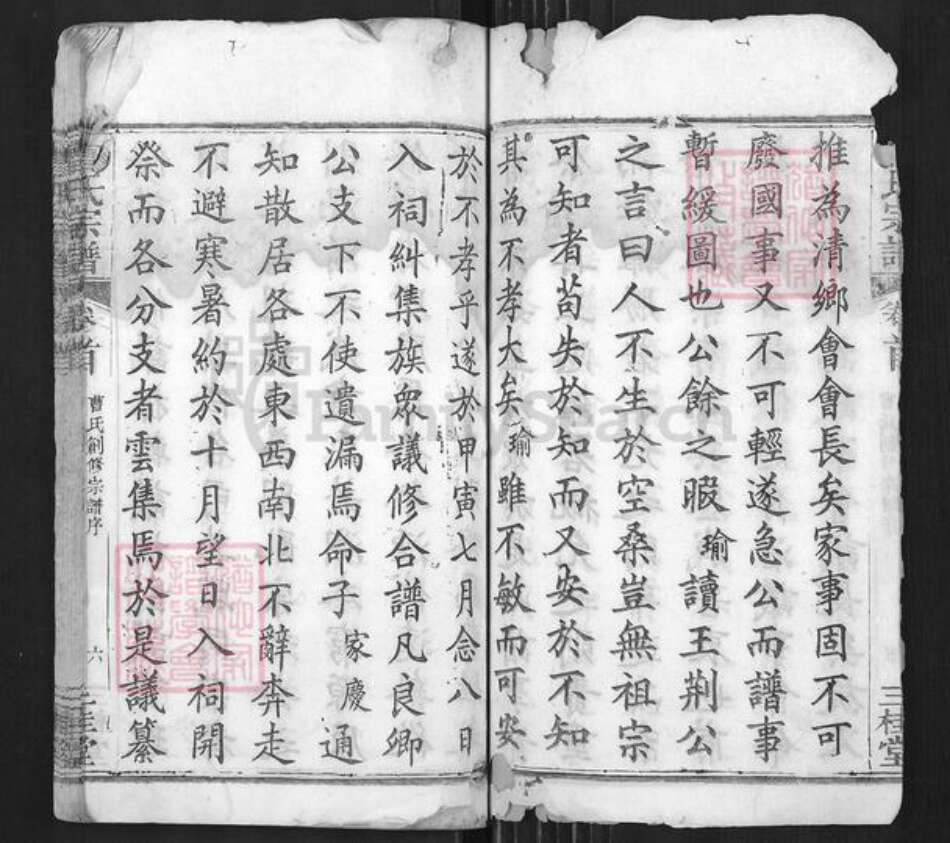 推為清鄉會會長矣家事固不可
廢國事又不可輕遂急公而譜事
暫緩圖也公餘之暇瑜讀王荆公
之言曰人不生於空桑豈無祖宗
可知者苟失於知而又安於不知
其為不孝大矣瑜雖不敏而可安
於不孝乎遂於甲寅七月念八日
入祠糾集族眾議修合譜凡良卿
公支下不使遺漏焉命子家慶通
知散居各處東西南北不辭奔走
不避寒暑約於十月望日入祠開
祭而各分支者雲集焉於是議纂
氏宗譜
卷首
曹氏創修宗譜序
六
三桂堂
氏宗譜
卷首
三桂堂
FamilySearch